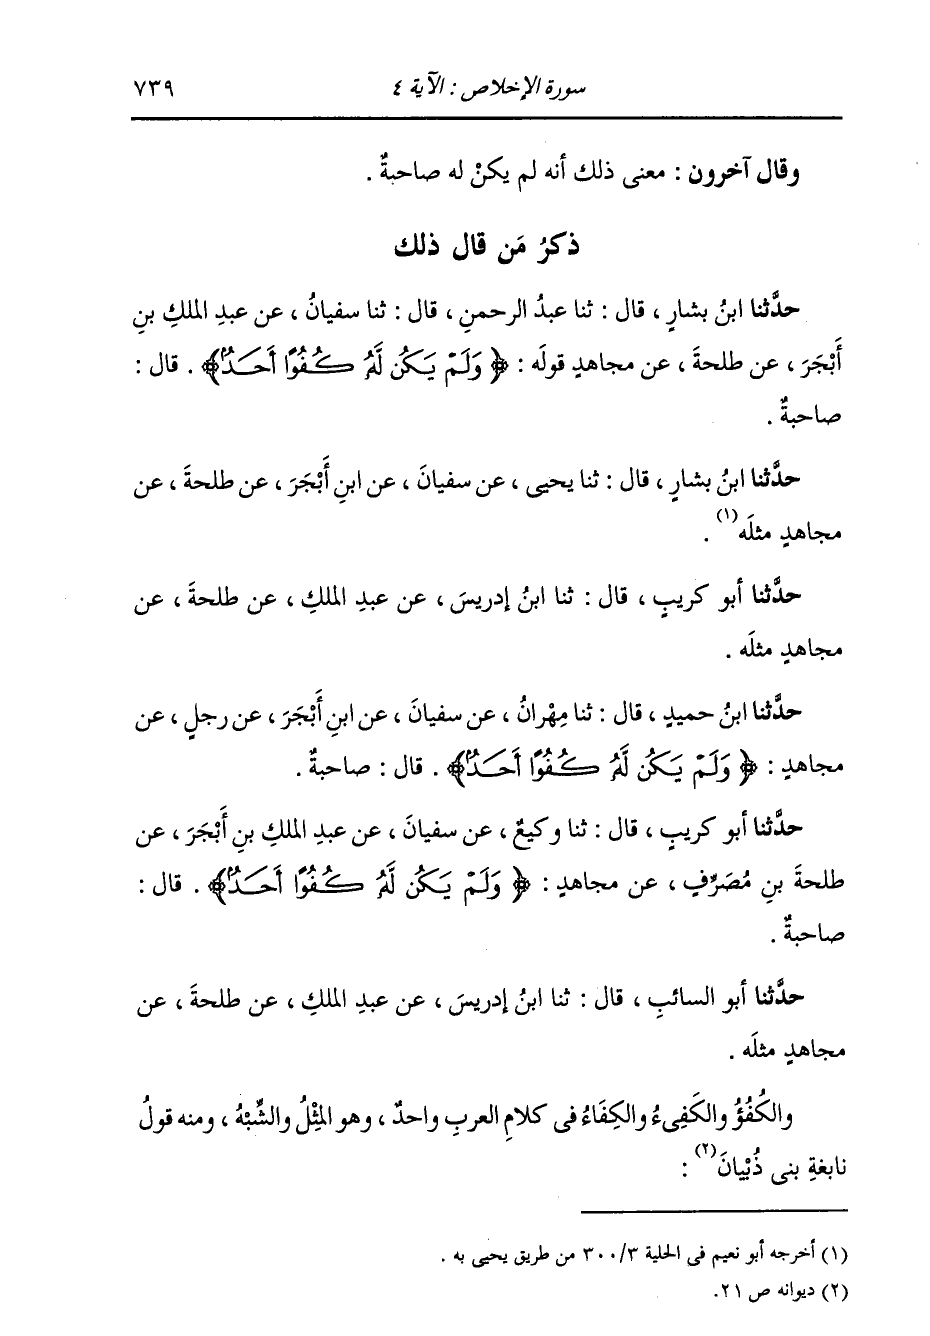 سورة الإخلاص : الآية ٤ ٧٣٩
وقال آخرون : معنى ذلك أنه لم يكنْ له صاحبةٌ .
ذكرُ مَن قال ذلك
حدَّثنا ابنُ بشارٍ ، قال : ثنا عبدُ الرحمنِ ، قال : ثنا سفيانُ ، عن عبدِ الملكِ بنِ
أَبْجَرَ ، عن طلحةَ ، عن مجاهدٍ قولَه : ﴿ وَلَمْ يَكُن لَّهُ كُفُوًا أَحَدٌ ﴾ . قال :
صاحبةٌ .
حدَّثنا ابنُ بشارٍ ، قال : ثنا يحيى ، عن سفيانَ ، عن ابنِ أَبْجَرَ ، عن طلحةَ ، عن
مجاهدٍ مثلَه (١) .
حدَّثنا أبو كريبٍ ، قال : ثنا ابنُ إدريسَ ، عن عبدِ الملكِ ، عن طلحةَ ، عن
مجاهدٍ مثلَه .
حدَّثنا ابنُ حميدٍ ، قال : ثنا مِهْرانُ ، عن سفيانَ ، عن ابنِ أَبْجَرَ ، عن رجلٍ ، عن
مجاهدٍ : ﴿ وَلَمْ يَكُن لَّهُ كُفُوًا أَحَدٌ ﴾ . قال : صاحبةٌ .
حدَّثنا أبو كريبٍ ، قال : ثنا وكيعٌ ، عن سفيانَ ، عن عبدِ الملكِ بنِ أَبْجَرَ ، عن
طلحةَ بنِ مُصَرِّفٍ ، عن مجاهدٍ : ﴿ وَلَمْ يَكُن لَّهُ كُفُوًا أَحَدٌ ﴾ . قال :
صاحبةٌ .
حدَّثنا أبو السائبِ ، قال : ثنا ابنُ إدريسَ ، عن عبدِ الملكِ ، عن طلحةَ ، عن
مجاهدٍ مثلَه .
والكُفُؤُ والكَفِىءُ والكِفَاءُ فى كلامِ العربِ واحدٌ ، وهو المِثْلُ والشِّبْهُ ، ومنه قولُ
نابغةِ بنى ذُبْيانَ (٢) :
(١) أخرجه أبو نعيم فى الحلية ٣٠٠/٣ من طريق يحيى به .
(٢) ديوانه ص ٢١.